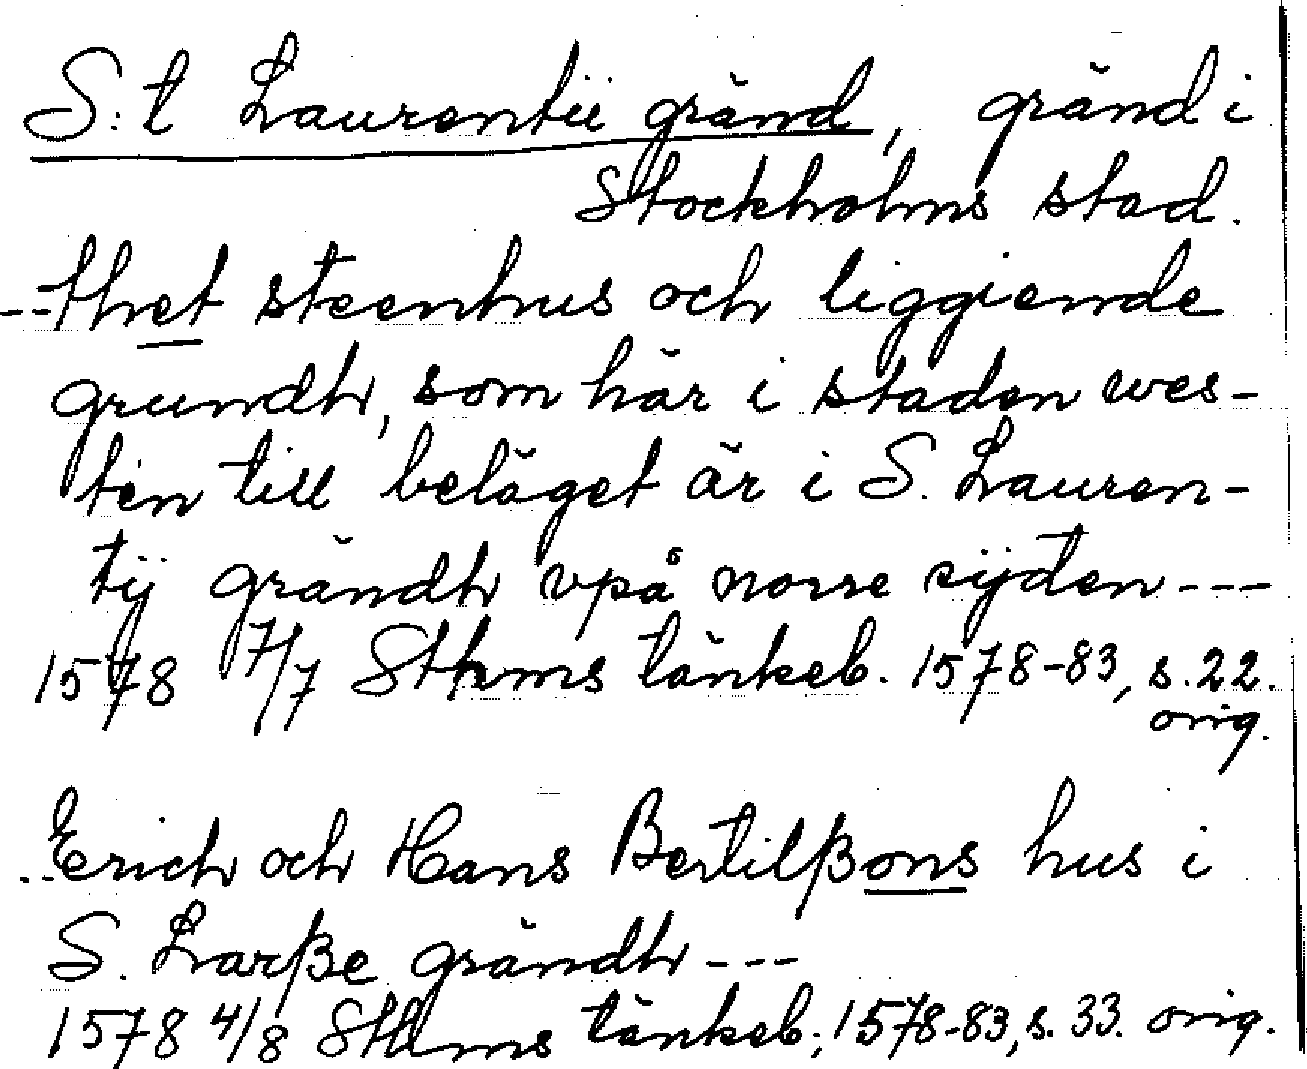 S:t Laurentii gränd, gränd i
Stockholms stad.
--thet steenhus och liggiende
grundh, som här i staden wes-
ten till beläget är i S. Lauren-
tij grändh vpå norre sijden---
1578 7/7 Sthms tänkeb. 1578-83, s. 22.
orig.
..Erich och Hans Bertilßons hus i
S. Larße grändh---
1578 4/8 Sthms tänkeb; 1578-83, s. 33. orig.